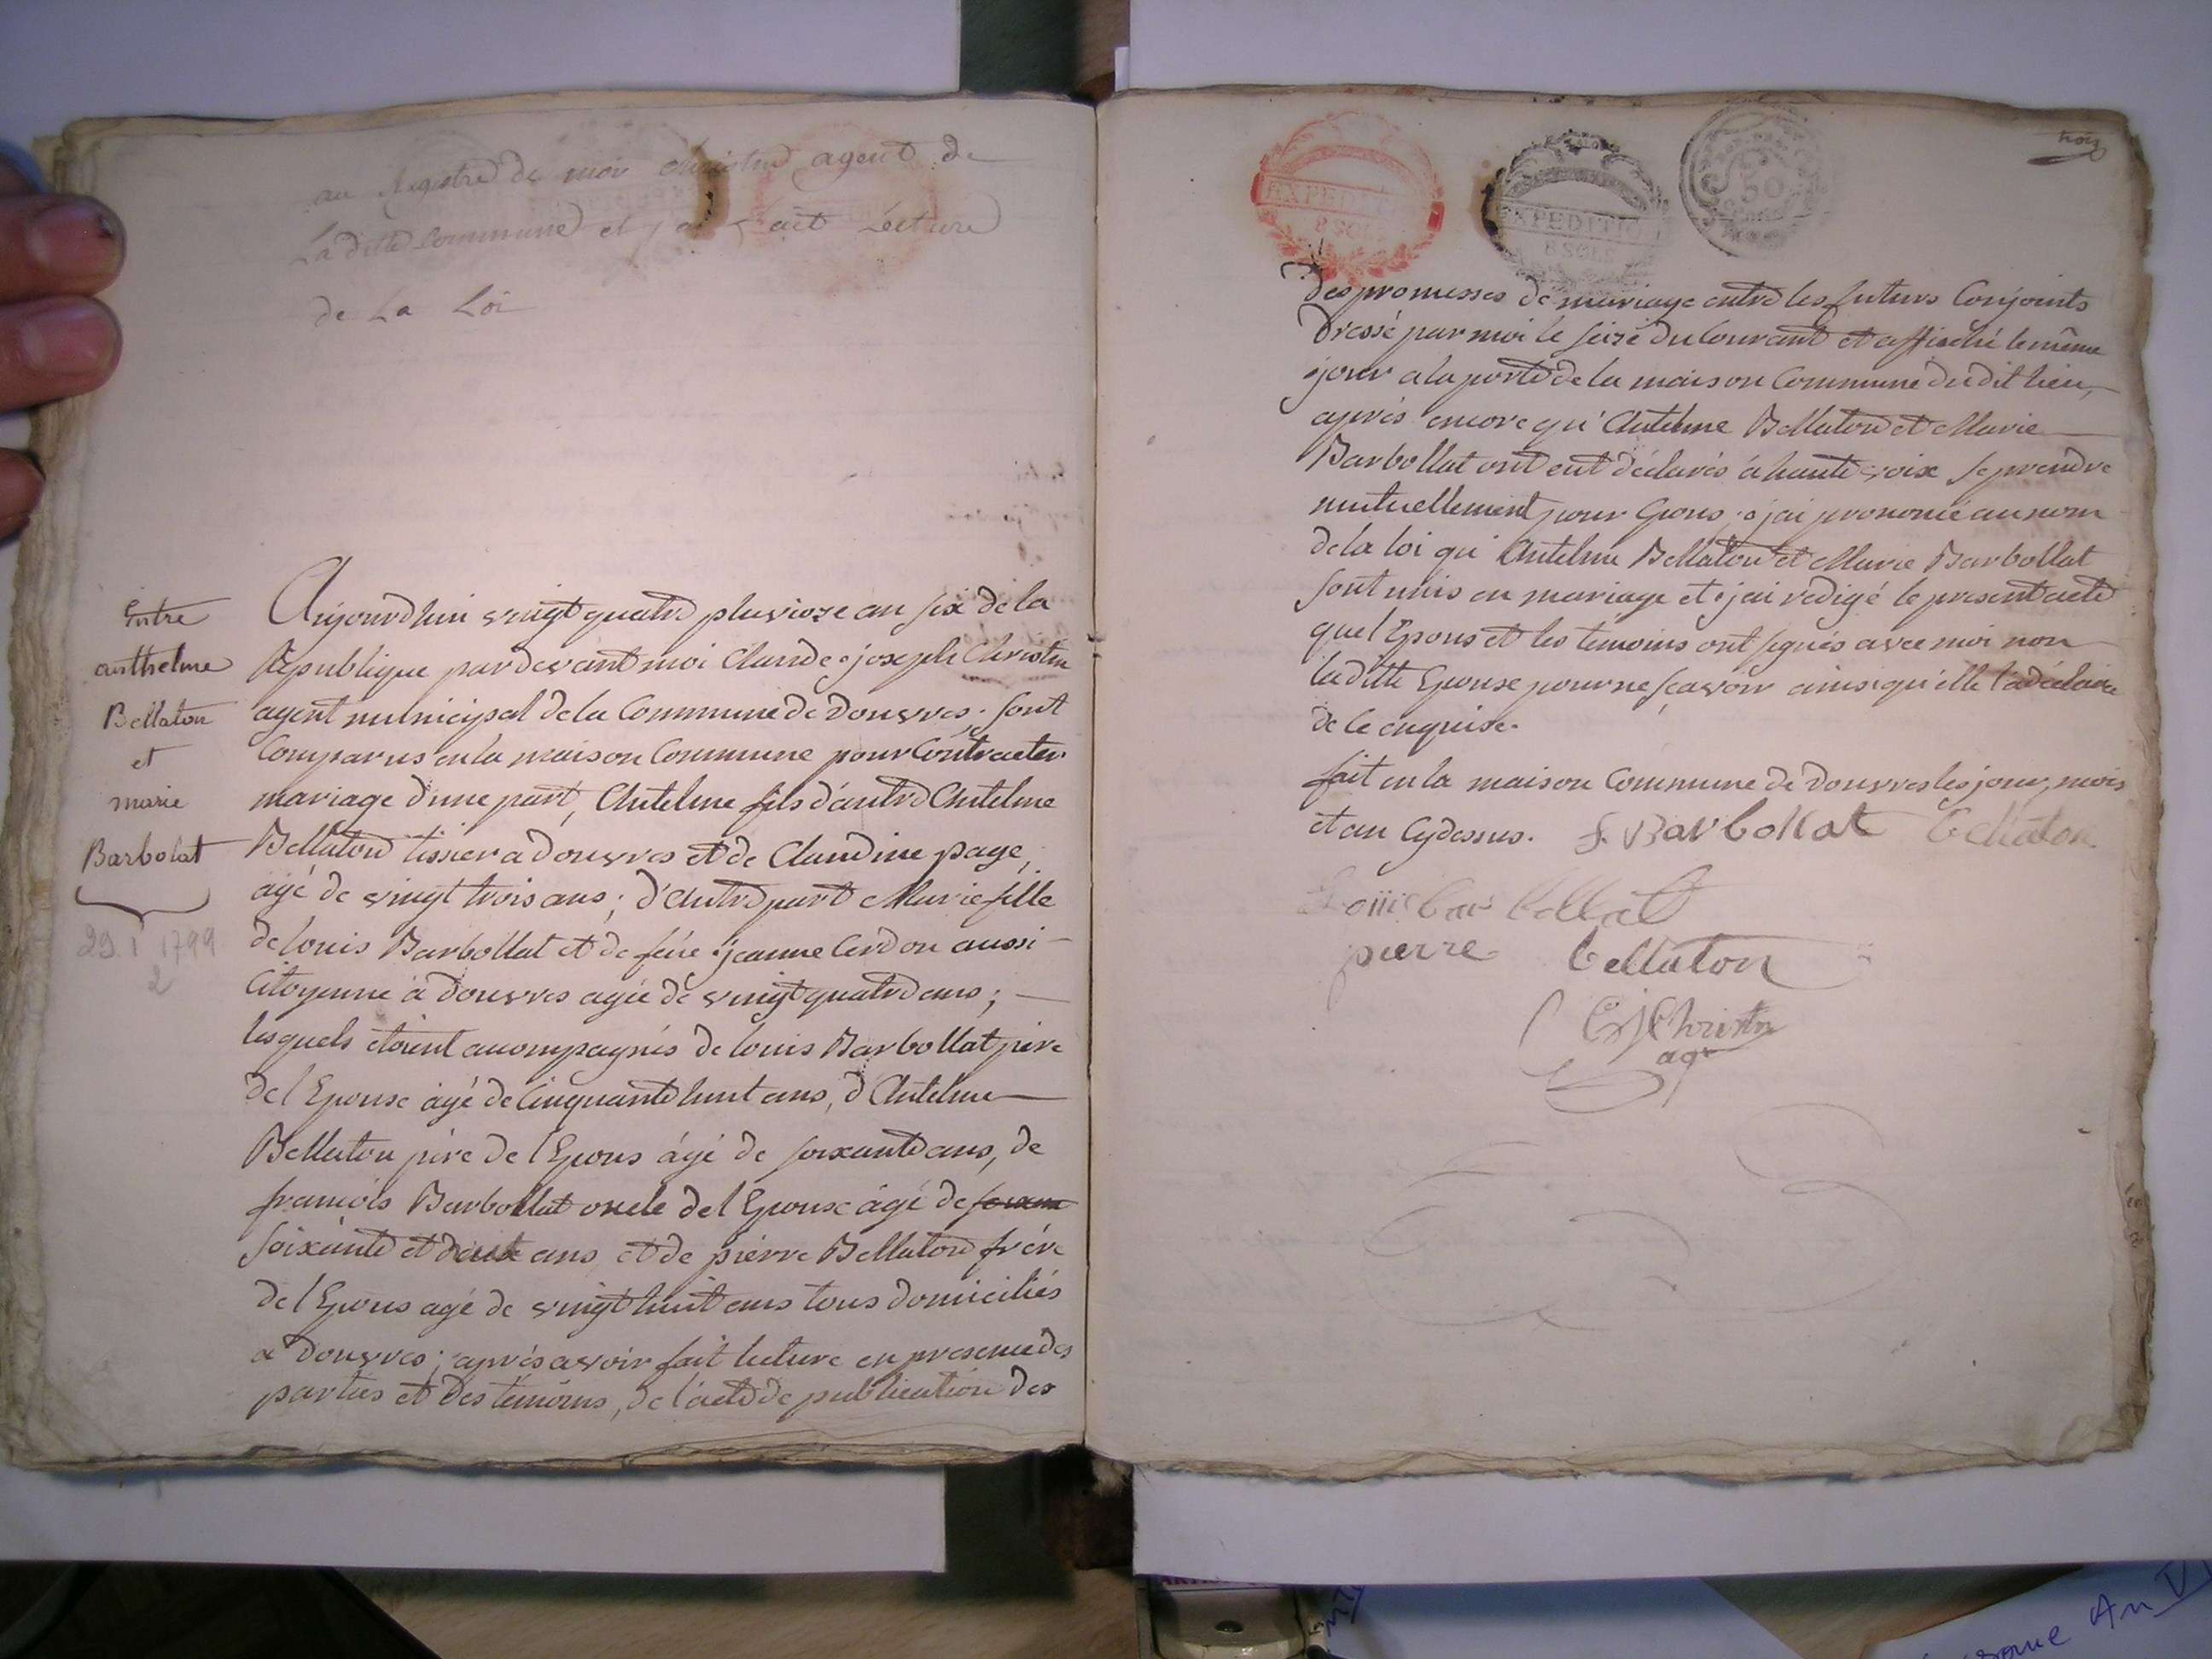 au Registre de moi Christin agent de
La ditte Commune et j'ai fait Lecture
de La Loi
Entre
anthelme
Bellaton
et
marie
Barbolat
1799
2
Aujourdhui vingt quatre pluviose an six de la
Republique pardevant moi Claude joseph Christin
agent municipal de la Commune de Douvres, sont
Comparus en la maison Commune pour Contracter
mariage d'une part, Antelme fils d'autre Antelme
Bellaton tissier a Douvres et de Claudine page,
agé de vingt trois ans; d'Autre part Marie fille
de louis Barbollat et de feüe jeanne Cerdon aussi
Citoyenne à Douvres agée de vingt quatre ans;
lesquels étoient acompagnés de louis Barbollat père
de l'Epouse agé de Cinquante huit ans, d'Antelme
Bellaton père de l'Epous ágé de soixante ans, de
francois Barbollat oncle de l'Epouse agé de
soixante et deux ans et de pierre Bellaton frère
de l'Epous agé de vingt huit ans tous domiciliés
a Douvres; après avoir fait lecture en presence des
parties et des témoins, de l'acte de publication des
trois
EXPEDITION
8 SOLS
EXPEDITION
8 SOLS
50
Des promesses de mariage entre les futurs Conjoints
Dressé par moi le seize du Courant et affiché le même
jour a la porte de la maison Commune du dit lieu,
après encore qu'Antelme Bellaton et Marie
Barbollat ont eut déclarés à haute voix se prendre
mutuellement pour Epous; j'ai prononcé au nom
de la loi qu'Antelme Bellaton et Marie Barbollat
sont unis en mariage et j'ai redigé le present acte
que l'Epous et les temoins ont signés avec moi non
la ditte Epouse pour ne sçavoir ainsi qu'elle l'a déclaré
de ce enquise.
fait en la maison Commune de Douvres les jour, mois
et an Cydessus. f. Barbollat Bellaton
Louis barbollat
pierre bellaton
C J Christin
agt
An V